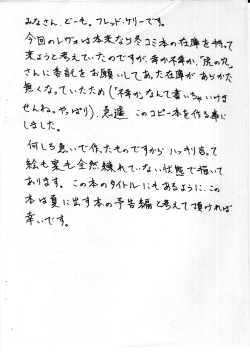 みなさん、どーも。フレッド・ケリーです。
今回のレヴォは本来なら冬コミ本の在庫を持って
来ようと考えていたのですが、幸か不幸か、「虎の穴」
さんに委託をお願いしてあった在庫があらかた
無くなっていたため(「不幸か」なんて書いちゃいけま
せんね。やっぱり)、急遽 このコピー本を作る事に
しました。
何しろ急いで作ったものですから、ハッキリ言って
絵も案も全然練れていない状態で描いて
おります。この本のタイトルにもあるように、この
本は夏に出す本の予告編と考えて頂ければ
幸いです。